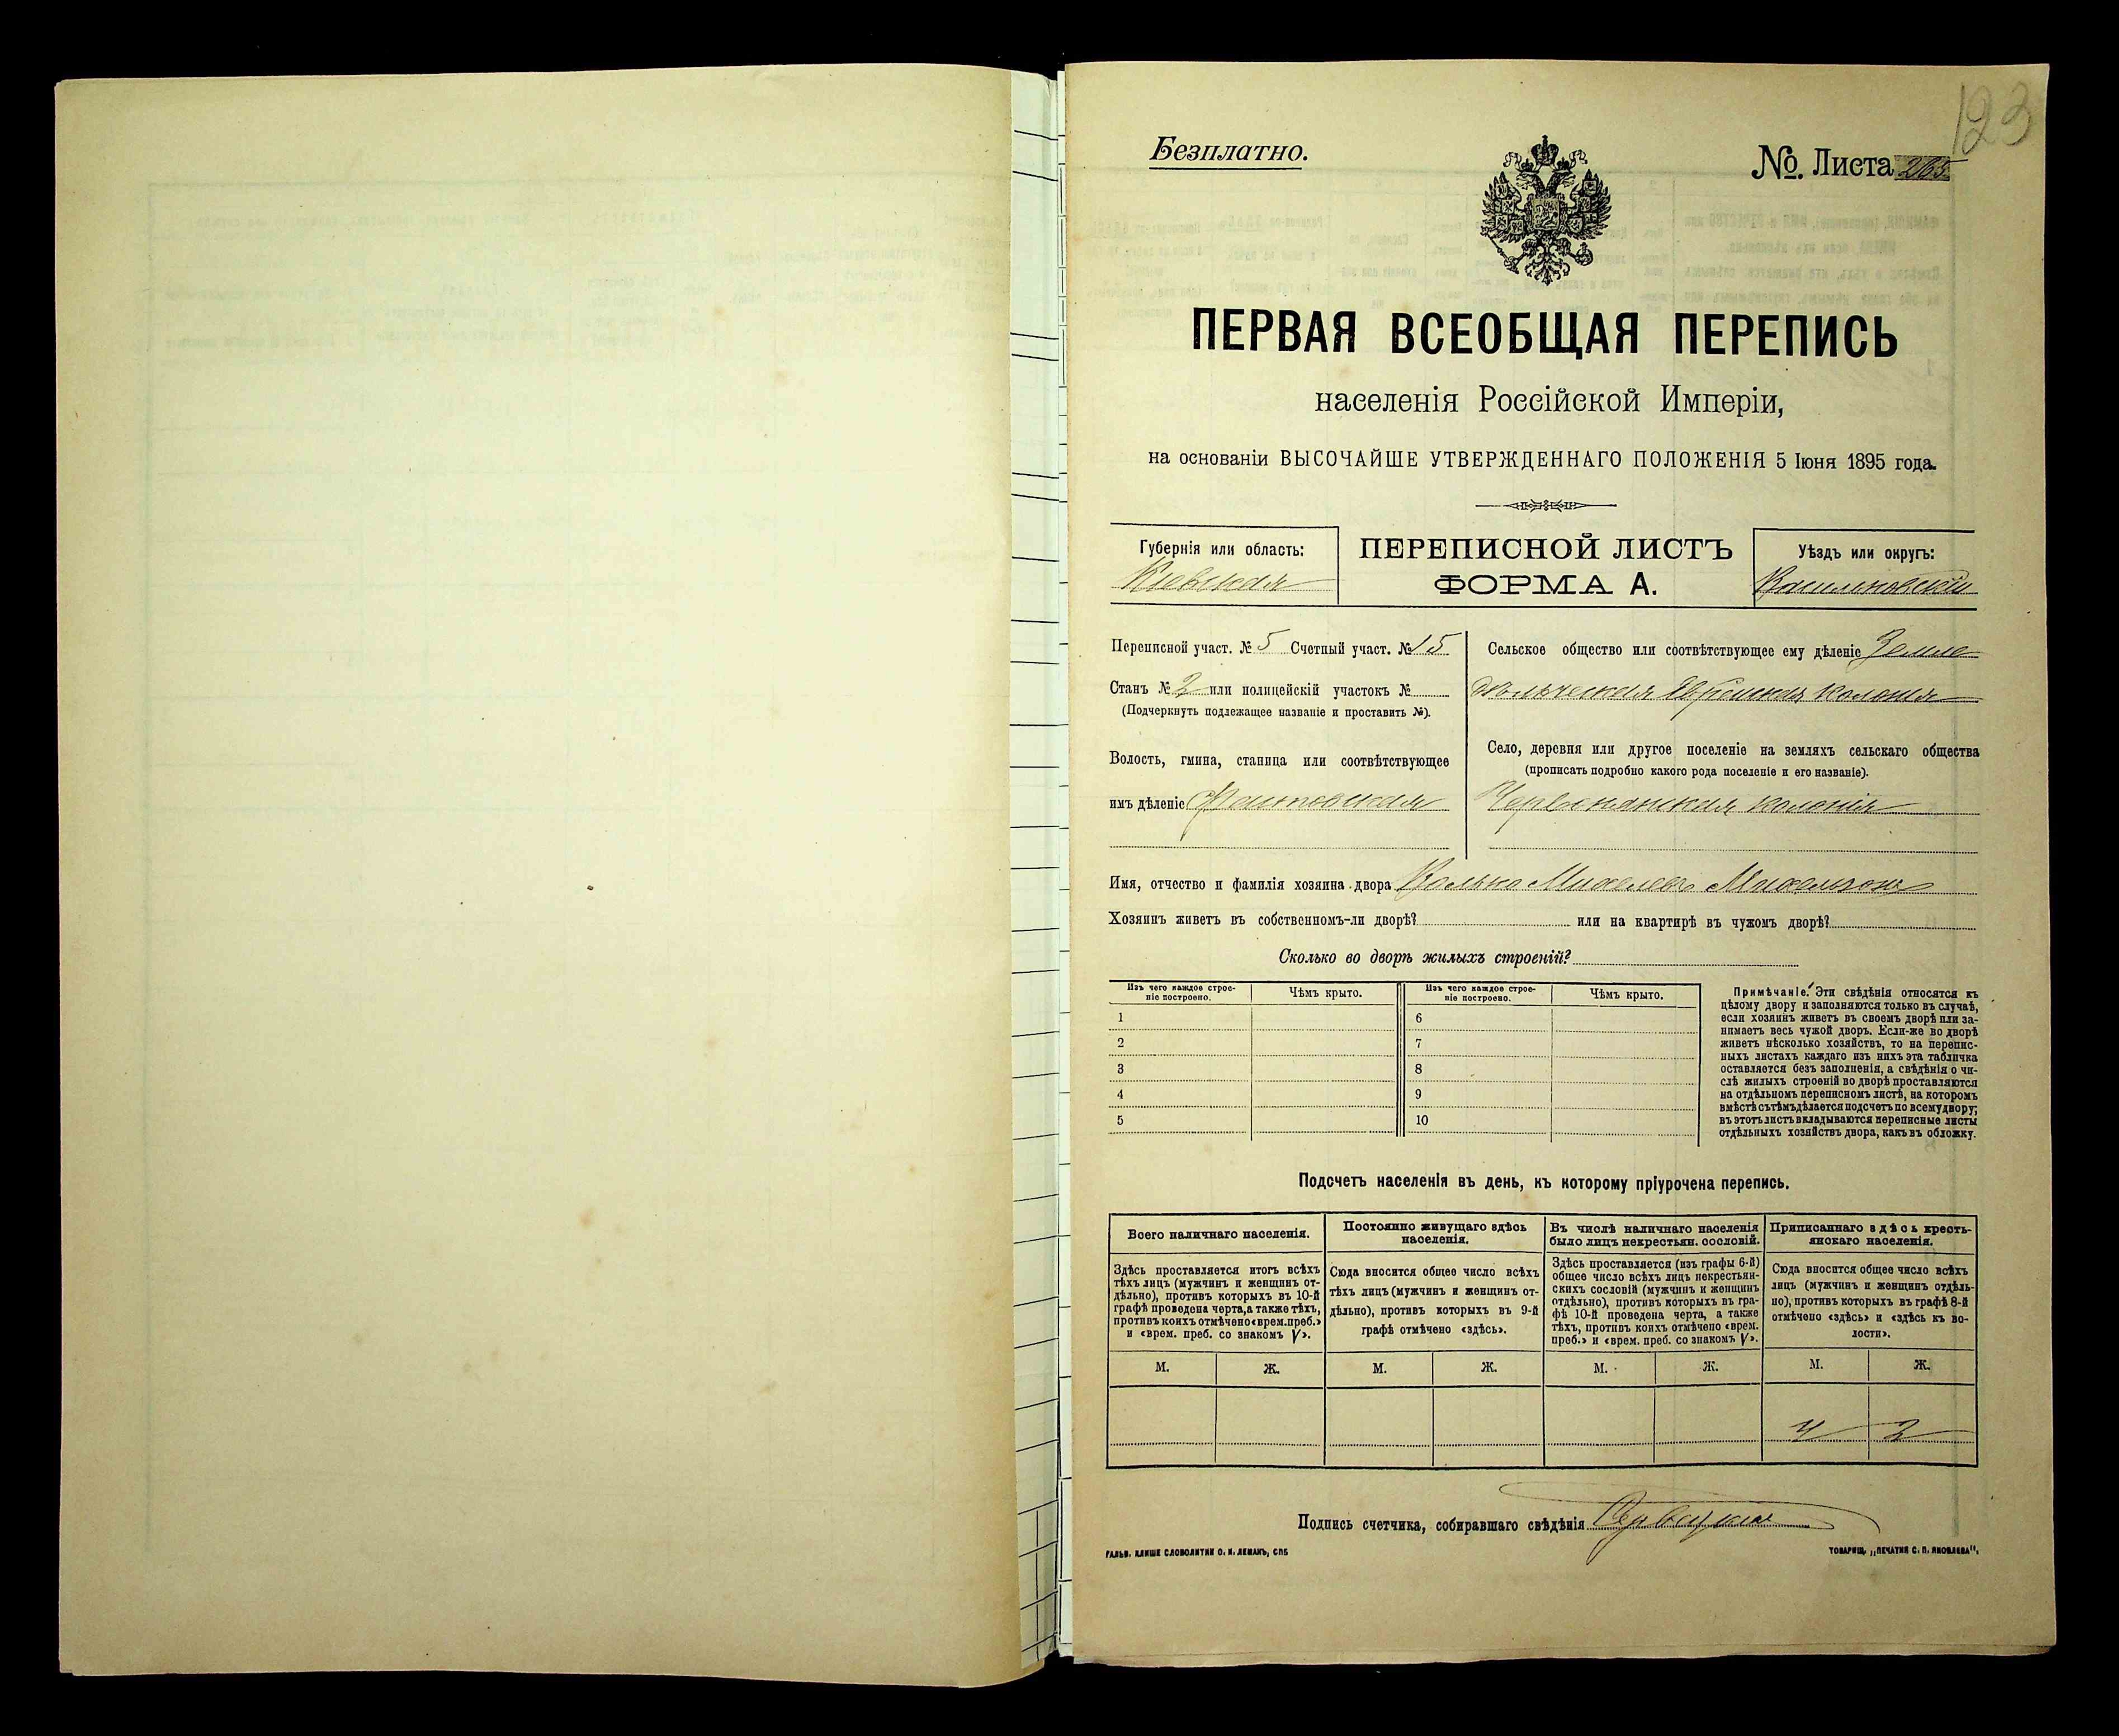 123
Безплатно.
№. Листа 265
ПЕРВАЯ ВСЕОБЩАЯ ПЕРЕПИСЬ
населенія Россійской Имперіи,
на основаніи ВЫСОЧАЙШЕ УТВЕРЖДЕННАГО ПОЛОЖЕНІЯ 5 Іюня 1895 года.
Губернія или область:
Кіевская
ПЕРЕПИСНОЙ ЛИСТЪ
ФОРМА А.
Уѣздъ или округъ:
Васильковскій
Переписной участ. № 5 Счетный участ. № 15
Станъ № 2 или полицейскій участокъ №
(Подчеркнуть подлежащее названіе и проставить №).
Волость, гмина, станица или соотвѣтствующее
имъ дѣленіе Фастовская
Сельское общество или соотвѣтствующее ему дѣленіе Земле
дѣльческая Еврейская колонія
Село, деревня или другое поселеніе на земляхъ сельскаго общества
(прописать подробно какого рода поселеніе и его названіе).
Червонянская колонія
Имя, отчество и фамилія хозяина двора Волько Михелевъ Михельзонъ
Хозяинъ живетъ въ собственномъ-ли дворѣ? или на квартирѣ въ чужомъ дворѣ?
Сколько во дворѣ жилыхъ строеній?
Изъ чего каждое строе-
ніе построено.
Чѣмъ крыто.
Изъ чего каждое строе-
ніе построено.
Чѣмъ крыто.
1 6
2 7
3 8
4 9
5 10
Примѣчаніе. Эти свѣдѣнія относятся къ
цѣлому двору и заполняются только въ случаѣ,
если хозяинъ живетъ въ своемъ дворѣ или за-
нимаетъ весь чужой дворъ. Если-же во дворѣ
живетъ нѣсколько хозяйствъ, то на перепис-
ныхъ листахъ каждаго изъ нихъ эта табличка
оставляется безъ заполненія, а свѣдѣнія о чи-
слѣ жилыхъ строеній во дворѣ проставляются
на отдѣльномъ переписномъ листѣ, на которомъ
вмѣстѣ съ тѣмъ дѣлается подсчетъ по всему двору;
въ этотъ листъ вкладываются переписные листы
отдѣльныхъ хозяйствъ двора, какъ въ обложку.
Подсчетъ населенія въ день, къ которому пріурочена перепись.
Всего наличнаго населенія.
Здѣсь проставляется итогъ всѣхъ
тѣхъ лицъ (мужчинъ и женщинъ от-
дѣльно), противъ которыхъ въ 10-й
графѣ проведена черта, а также тѣхъ,
противъ коихъ отмѣчено «врем. преб.»
и «врем. преб. со знакомъ V».
М. Ж.
Постоянно живущаго здѣсь
населенія.
Сюда вносится общее число всѣхъ
тѣхъ лицъ (мужчинъ и женщинъ от-
дѣльно), противъ которыхъ въ 9-й
графѣ отмѣчено «здѣсь».
М. Ж.
Въ числѣ наличнаго населенія
было лицъ некрестьян. сословій.
Здѣсь проставляется (изъ графы 6-й)
общее число всѣхъ лицъ некрестьян-
скихъ сословій (мужчинъ и женщинъ
отдѣльно), противъ которыхъ въ гра-
фѣ 10-й проведена черта, а также
тѣхъ, противъ коихъ отмѣчено «врем.
преб.» и «врем. преб. со знакомъ V».
М. Ж.
Приписаннаго здѣсь кресть-
янскаго населенія.
Сюда вносится общее число всѣхъ
лицъ (мужчинъ и женщинъ отдѣль-
но), противъ которыхъ въ графѣ 8-й
отмѣчено «здѣсь» и «здѣсь къ во-
лости».
М. Ж.
4 2
Подпись счетчика, собиравшаго свѣдѣнія
ГАЛЬВ. КЛИШЕ СЛОВОЛИТНИ О. И. ЛЕМАНЪ, СПБ
ТОВАРИЩ. „ПЕЧАТНЯ С. П. ЯКОВЛЕВА".